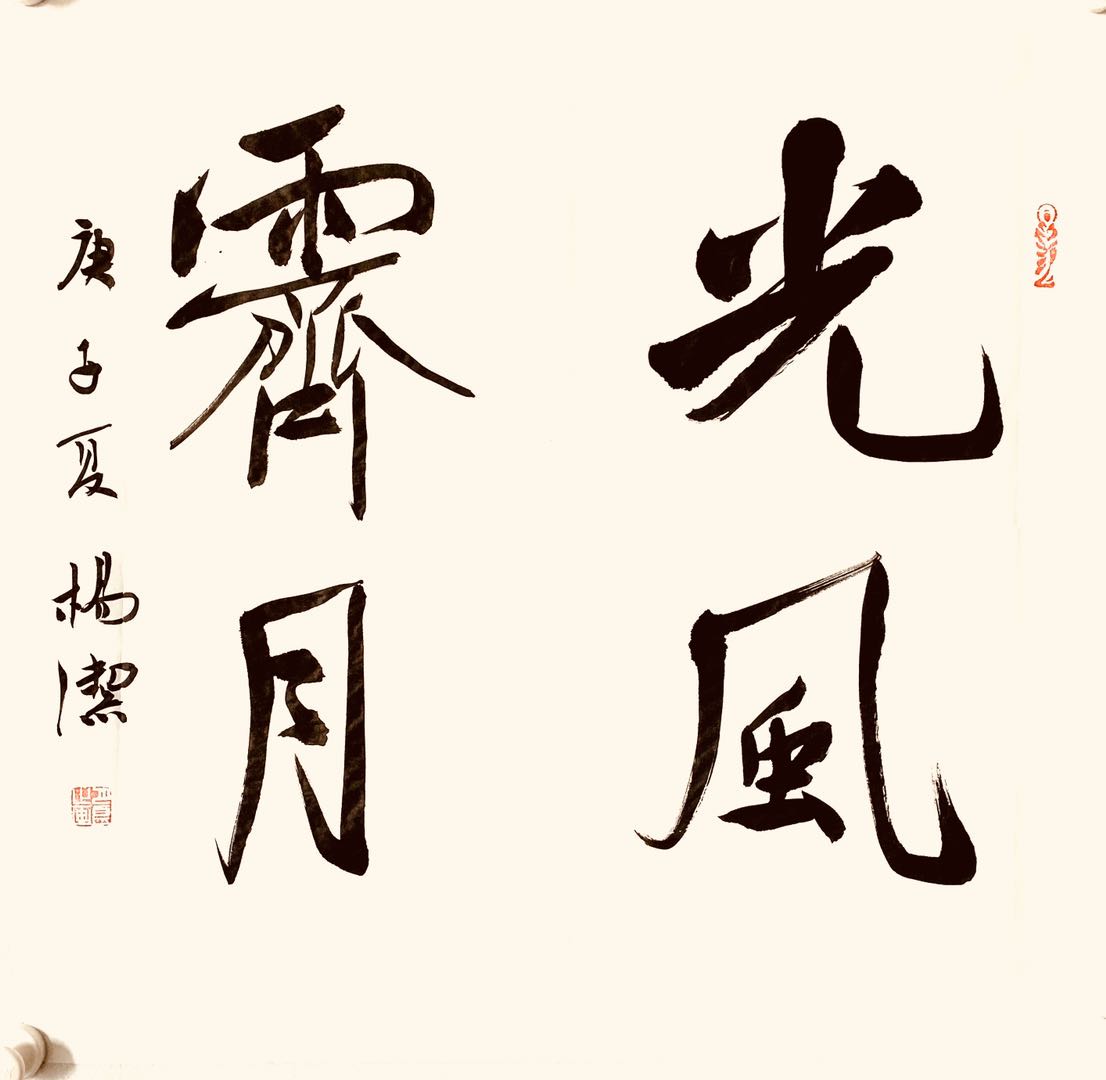 光風
霽月
庚子夏 楊潔